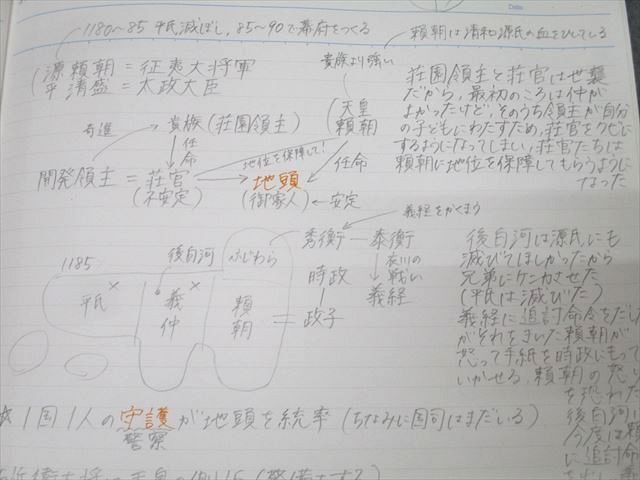 Date
1180〜85 平氏滅ぼし, 85〜90で幕府をつくる
頼朝は清和源氏の血をひしている
源頼朝 = 征夷大将軍
平清盛 = 太政大臣
貴族より強い
天皇
頼朝
寄進
貴族 (荘園領主)
任命
地位を保障して!
任命
開発領主 = 荘官
(不安定)
地頭
(御家人) ← 安定
荘園領主と荘官は世襲
だから, 最初のころは仲が
よかったけど, そのうち領主が自分
の子どもにわたすため, 荘官をクビに
するようになってしまい, 荘官たちは
頼朝に地位を保障してもらうように
なった
義経をかくまう
秀衡 ー 泰衡
衣川の
戦い
義経
時政
政子
1185
後白河
ふじわら
平氏
義仲
頼朝
後白河は源氏にも
滅びてほしかったから
兄弟にケンカさせた
(平氏は滅びた)
義経に追討命令をだし
がそれをきいた頼朝が
怒って手紙を時政にもって
いかせる, 頼朝の怒り
を恐れた
後白河
今度は頼
に追討命
☆1国1人の守護が地頭を統率 (ちなみに国司はまだいる)
警察